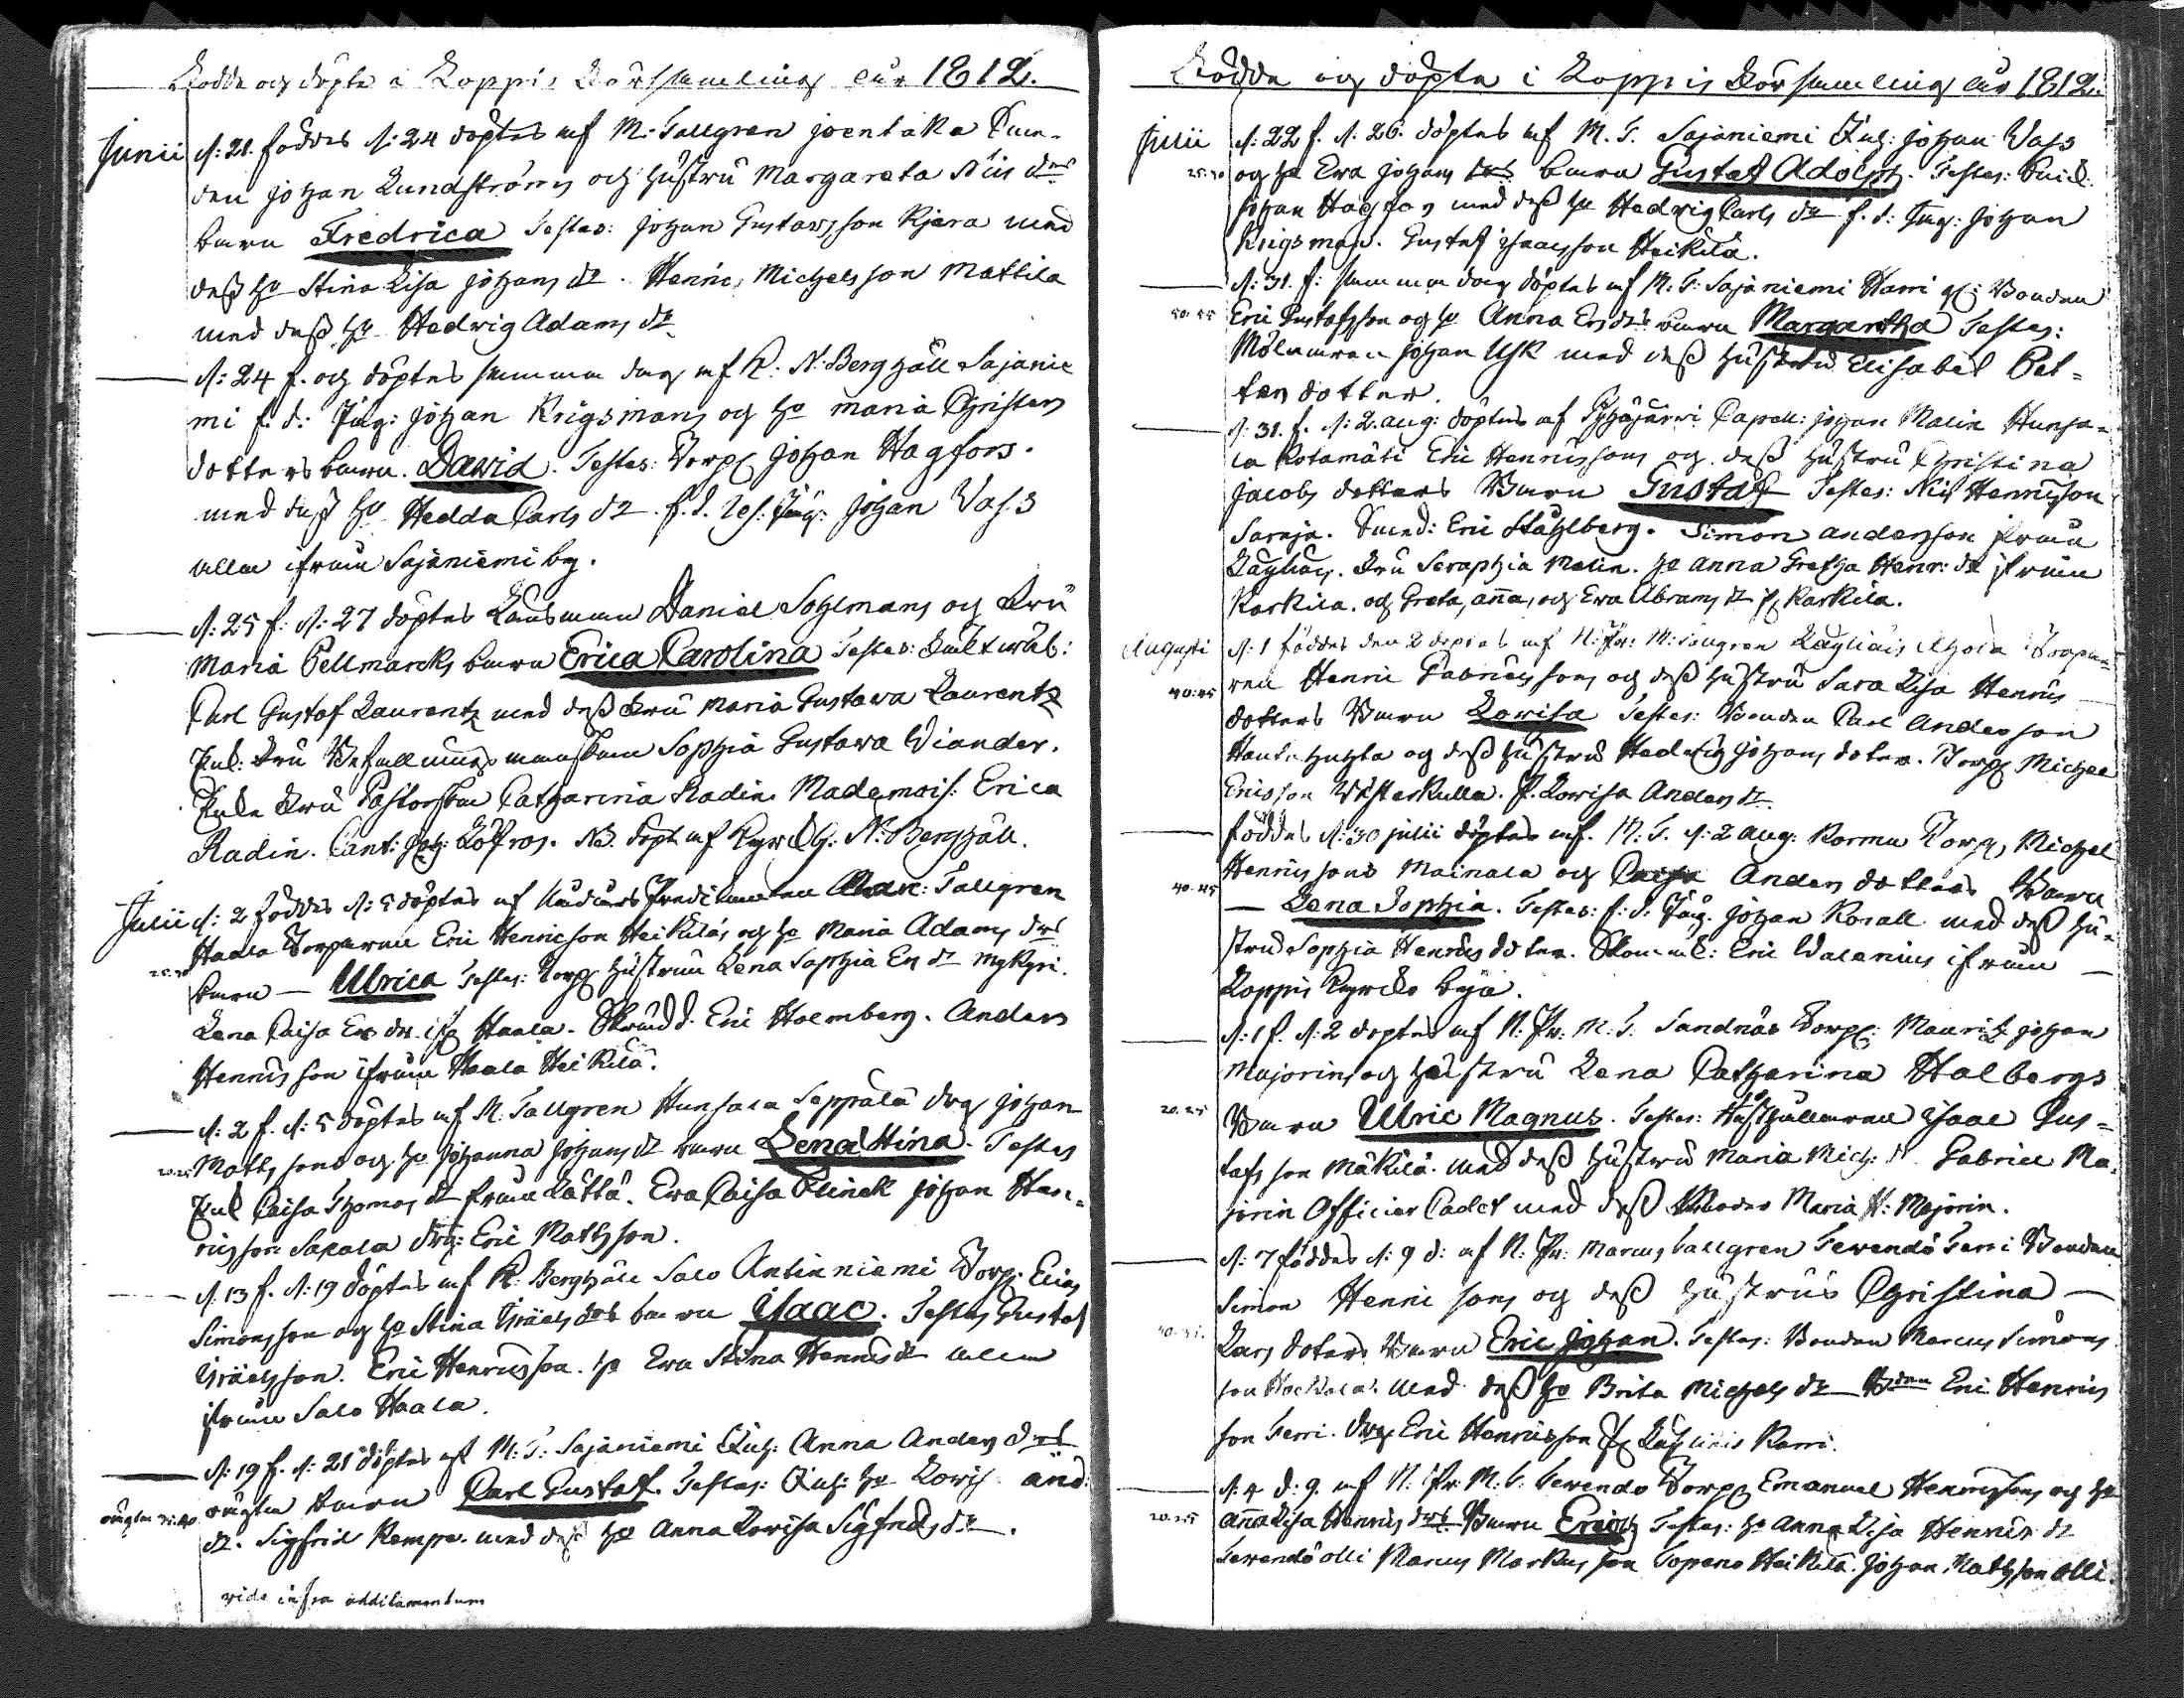 Födde och döpte i Loppis Församling åår 1812.
Junii d: 21. föddes d: 24 döptes af M. Tallgren joentaka
den johan Lundströms och hustru Margareta Nils drs
barn Fredrica Testes: johan Gustavsson Kjera med
dess ho Stina Lisa johans dr. Henric Michelsson Mattila
med dess ho Hedwig Adams dr
d: 24 f. och döptes samma dag af K. N: Berghäll Sajanie
mi f. d: Jäg: johan Krigsmans och ho maria Christers
dotters barn. Dawid. Testes: Torp johan Hagfors.
med dess ho Hedda Carls dr. f. d. Jäg: johan Vass
alla ifrån Sajaniemi by.
d: 25 f: d: 27 döptes Länsman Daniel Sohlmans och Fru
Maria Pellmarcks barn Erica Carolina Testes:
Carl Gustaf Laurentz med dess Fru Maria Gustava Laurentz
Fru Befallningsmanskan Sophia Gustava Wiander.
Enke Fru Pastorskan Catharina Radin. Mademois: Erica
Radin. Cant: joh: Löfros. NB. döpt af Kyrckh: N: Berghäll.
Julii d: 2 föddes d: 5 döptes af Tallgren
Haala Torparen Eric Henricson Heikiläs och ho Maria Adams drs
25.30 barn — Ulrica Testes: Torp hustrun Lena Sophia Ers dr mykyri.
Lena Caisa Ers dr. ifr Haala. Skrädd. Eric Holmberg. Anders
Henrisson ifrån Haala Heikilä.
d: 2 f. d: 5 döptes af M. Tallgren Hunsala Seppälä drg johan
Matts sons och ho johanna johans dr barn Lena Stina. Testes
Caisa Thomas dr från Lättä. Ewa Caisa Flinck johan Hen-
risson Sakala drg: Eric Mattsson.
d: 13 f. d: 19 döptes af K. Berghäll Salo Antinniemi Torp. Elias
Simonsson och ho Stina Israels drs barn Isaac. Testes Gustaf
Israelsson. Eric Henricsson. ho Ewa Stina Henrics dr alla
ifrån Salo Haala.
d: 19 f. d: 21 döptes af M: T: Sajäniemi Inh: Anna Anders drs
oägta 35.40 oägta barn Carl Gustaf. Testes: Inh: ho Lovis. and:
dr. Sigfrid Kempe. med dess ho Anna Lovisa Sigfrids dr.
vide infra additamentum
Födde och döpte i Loppis Församling åår 1812.
Julii d: 22 f. d: 26. döptes af M. T. Sajäniemi Inh: johan Vass
25.30 och ho Ewa johans drs barn Gustaf Adolph. Testes:
johan Hagfors med dess ho Hedwig Carls dr f. d: Jäg: johan
Krigsman. Gustaf Isaacsson Heikilä.
d: 31. f: samma dag döptes af M. T. Sajäniemi Harri Bonden
50.55 Eric Gustafsson och ho Anna Ers drs barn Margaretha Testes:
Mölnaren johan Usk med dess hustru Elisabet Pet-
ters dotter.
d: 31. f. d: 2. aug: döptes af Pyhäjärwi Capell: johan Malin Hunsa-
la Kotamäti Eric Henrissons och dess hustru Christina
jacobs dotters Barn Gustaf Testes: Nils Henrisson
Saraja. Smed: Eric Ståhlberg. Simon anderson från
Läyliäis. Fru Seraphia Malin. ho anna Gretha Henr: dr ifrån
Karkila. och Greta, anna, och Ewa Abrams dr ifr Karkila.
Augusti d: 1 föddes den 2 döptes af N: Pr: M: Tallgren Läyliäis Ahola Torpa-
40.45 ren Henric Gabrielssons och dess hustru Sara Lisa Henrics
dotters Barn Lovisa Testes: Bonden Carl Andersson
Hanhuhta och dess hustru Hedwig johans doter. Torp Michel
Ericsson Westerkulla. P. Lovisa Anders dr.
föddes d: 30 julii döptes af. M: T. d: 2 aug: Kormu Torp Michel
Henrissons Mainala och Caisa Anders dotters Barn
40.45 — Lena Sophia. Testes: f. d. Jäg. johan Korall med dess hu-
stru Sophia Henrics doter. Eric Walenius ifrån —
Loppis Kyrcko byn.
d: 1 f. d: 2 döptes af N. Pr. M: T. Sandnäs Torp: Mauritz johan
Majorins och hustru Lena Catharina Halbergs
20.25 Barn Ulric Magnus. Testes: Hushållaren Isaac Gus-
tafsson Mäkilä. med dess hustru Maria Mich: d. Gabriel Ma-
jorin Officier Cadet med dess Moder Maria H: Majorin.
d: 7 föddes d: 9 d: af N: Pr: Marcus Tallgren Tewendö Terri Bonden
Simon Henrissons och dess hustrus Christina —
Lars doters Barn Eric johan. Testes: Bonden Marcus Simons
son Hockala. med dess ho Brita Michels dr Bden Eric Henrics
son Terri. drg Eric Henricsson ifr Läyliäis Karri.
d: 4 d: 9. af N: Pr: M. T. Tewendö Torp Emanuel Henrissons och ho
20.25 anna Lisa Henrics drs Barn Erica Testes: ho Anna Lisa Henrics dr
Tewendö olli Marcus Markusson Topeno Heikilä. johan Matsson olli